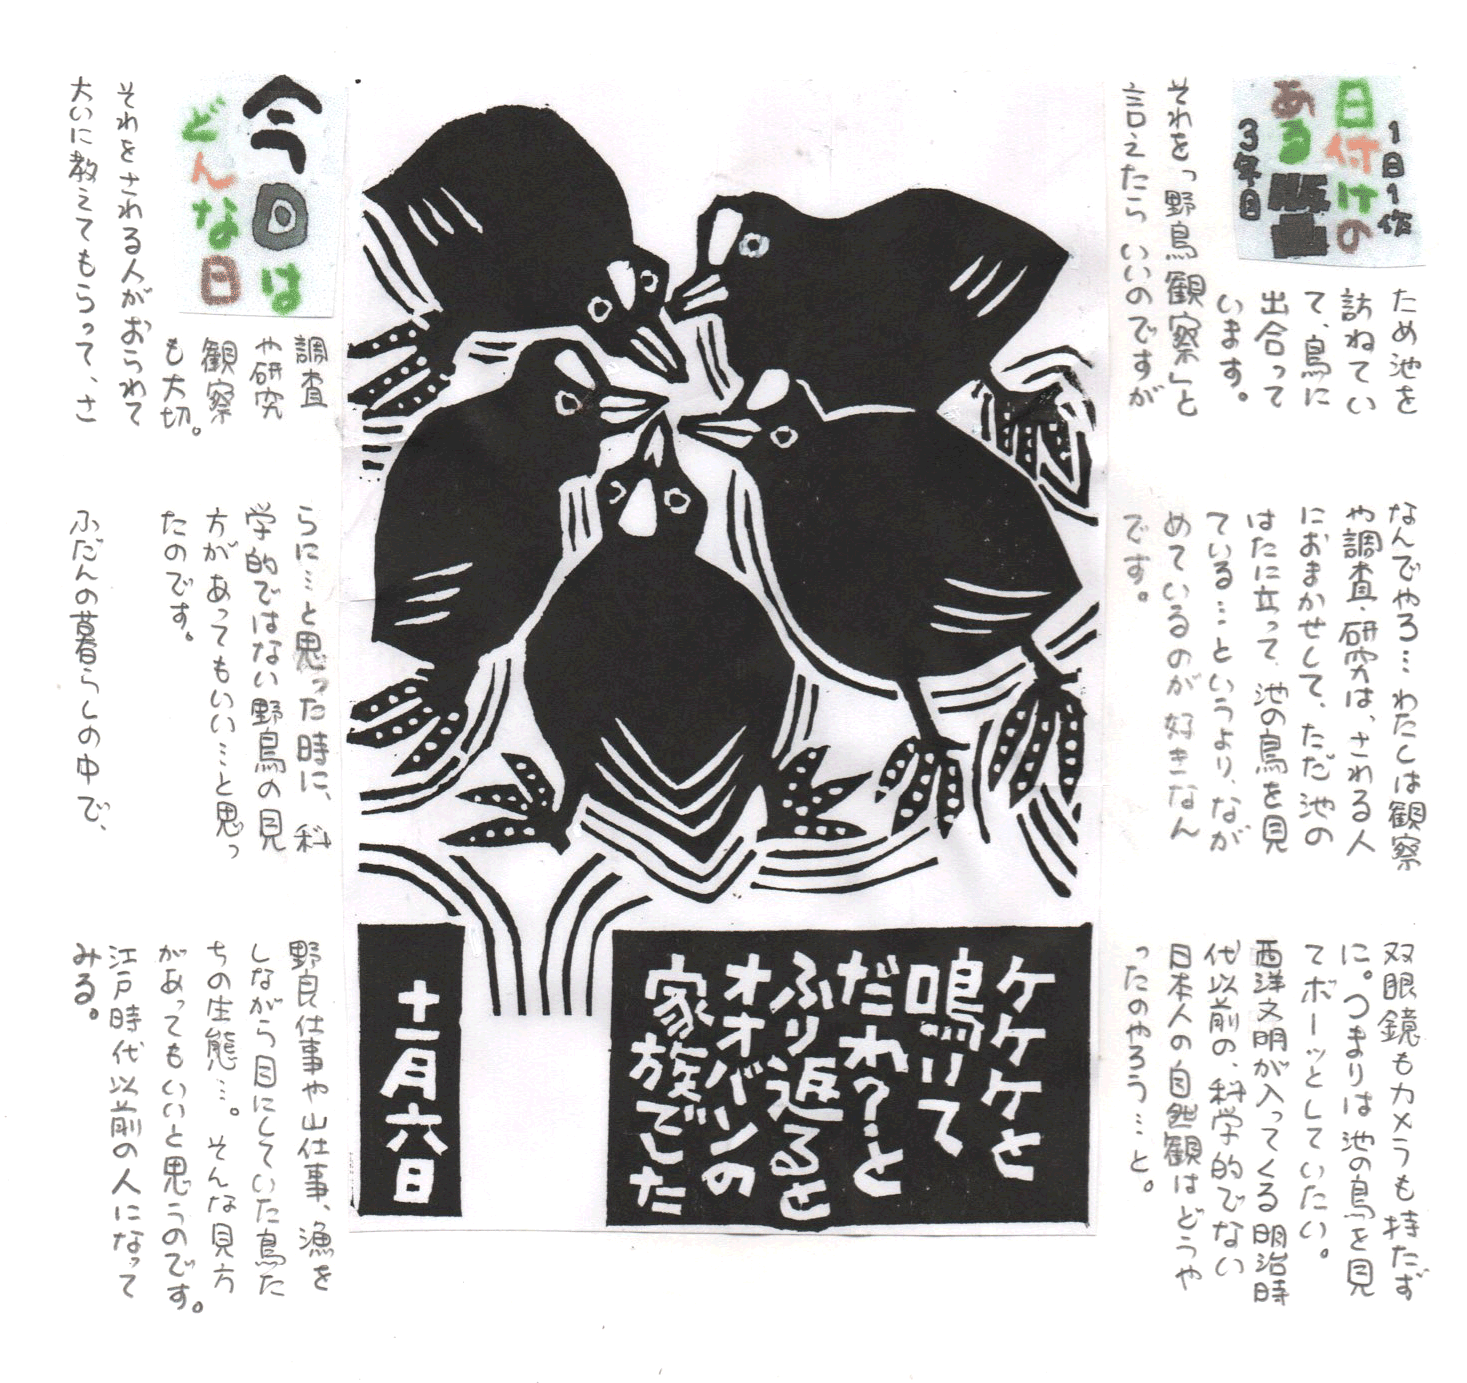 1日1作
日付けの
ある版画
3年目
ため池を
訪ねてい
て、鳥に
出合って
います。
それを「野鳥観察」と
言えたら いいのですが
なんでやろ… わたしは観察
や調査・研究は、される人
におまかせして、ただ池の
はたに立って、池の鳥を見
ている…というより、なが
めているのが 好きなん
です。
双眼鏡もカメラも持たず
に。つまりは池の鳥を見
てボーッとしていたい。
西洋文明が入ってくる明治時
代以前の、科学的でない
日本人の自然観はどうや
ったのやろう…と。
ケケケと
鳴いて
だれ?と
ふり返ると
オオバンの
家族でした
十一月六日
今日は
どんな日
調査
や研究
観察
も大切。
それをされる人がおられて
大いに教えてもらって、さ
らに…と思った時に、科
学的ではない野鳥の見
方があってもいい…と思っ
たのです。
ふだんの暮らしの中で、
野良仕事や山仕事、漁を
しながら目にしていた鳥た
ちの生態…。そんな見方
があってもいいと思うのです。
江戸時代以前の人になって
みる。